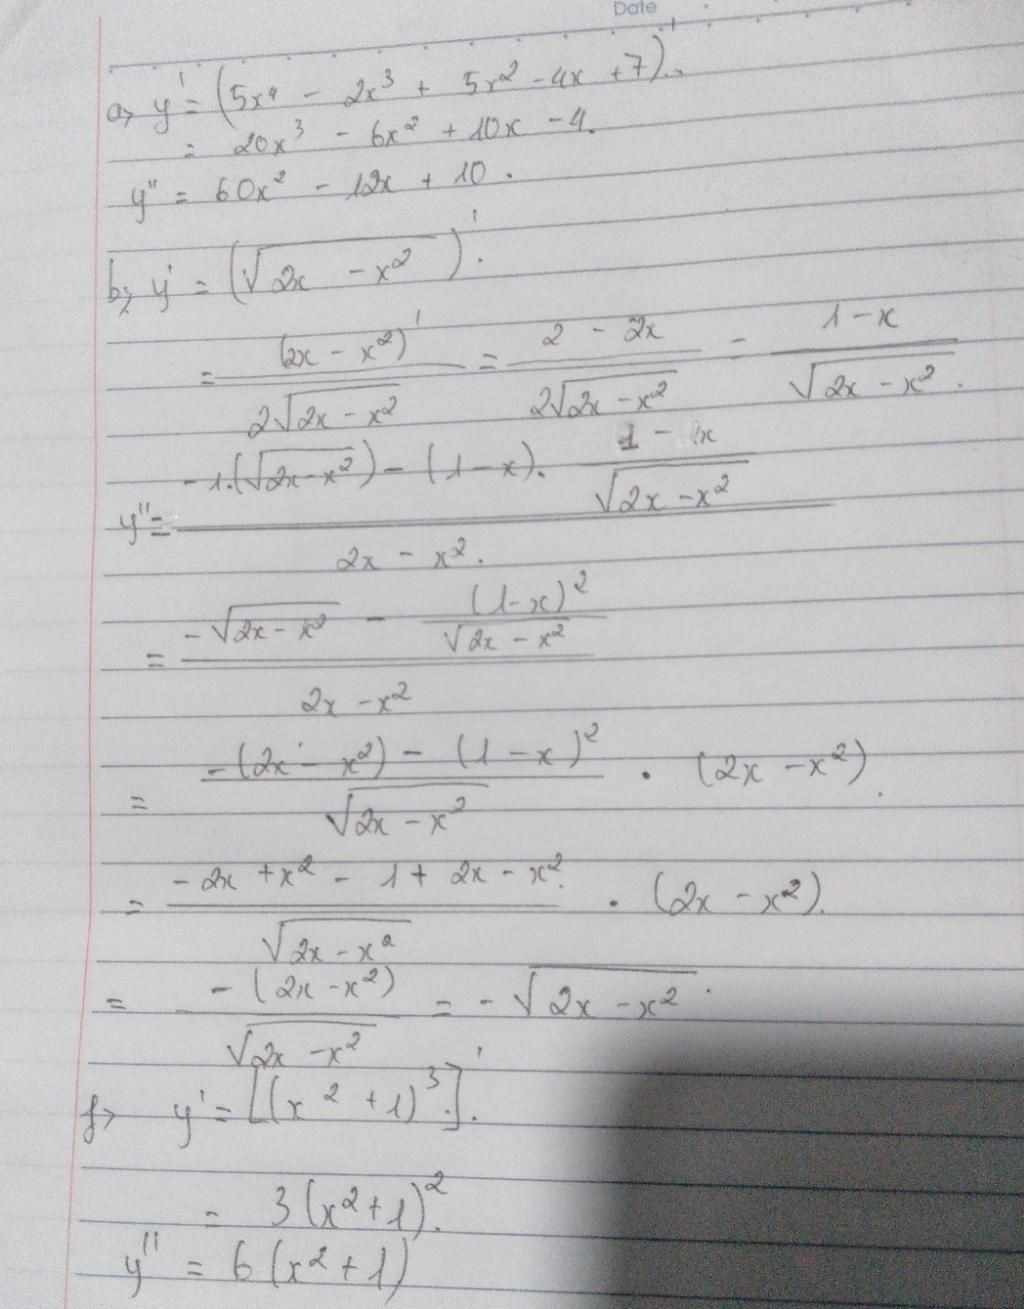 Date
a, y' = (5x⁴ - 2x³ + 5x² - 4x + 7)'.
= 20x³ - 6x² + 10x - 4.
y'' = 60x² - 12x + 10.
b, y' = (√(2x - x²))'.
= (2x - x²)' / 2√(2x - x²) = (2 - 2x) / 2√(2x - x²) - (1 - x) / √(2x - x²).
y'' = [-1.(√(2x - x²)) - (1 - x). (1 - x) / √(2x - x²)] / (2x - x²).
= [-√(2x - x²) - (1 - x)² / √(2x - x²)] / (2x - x²)
= [-(2x - x²) - (1 - x)²] / √(2x - x²) . (2x - x²).
= [-2x + x² - 1 + 2x - x².] / √(2x - x²) . (2x - x²).
= -(2x - x²) / √(2x - x²) = -√(2x - x²).
f, y' = [(x² + 1)³.]'.
= 3(x² + 1)².
y'' = 6(x² + 1)